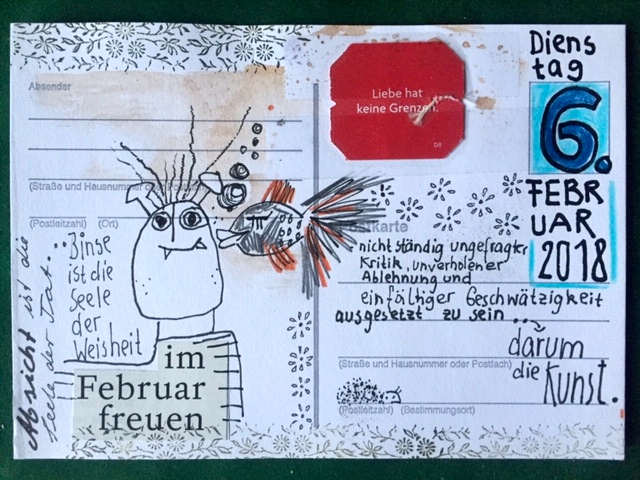 Absender
(Straße und Hausnummer oder Postfach)
(Postleitzahl) (Ort)
Absicht ist die
Seele der Tat...
...Binse
ist die
Seele
der
Weisheit
im
Februar
freuen
Liebe hat
keine Grenzen.
Diens
tag
6.
FEBR
UAR
2018
Postkarte
nicht ständig ungefragter
Kritik, unverholener
Ablehnung und
einfältiger Geschwätzigkeit
ausgesetzt zu sein...
darum
die Kunst.
(Straße und Hausnummer oder Postfach)
(Postleitzahl) (Bestimmungsort)